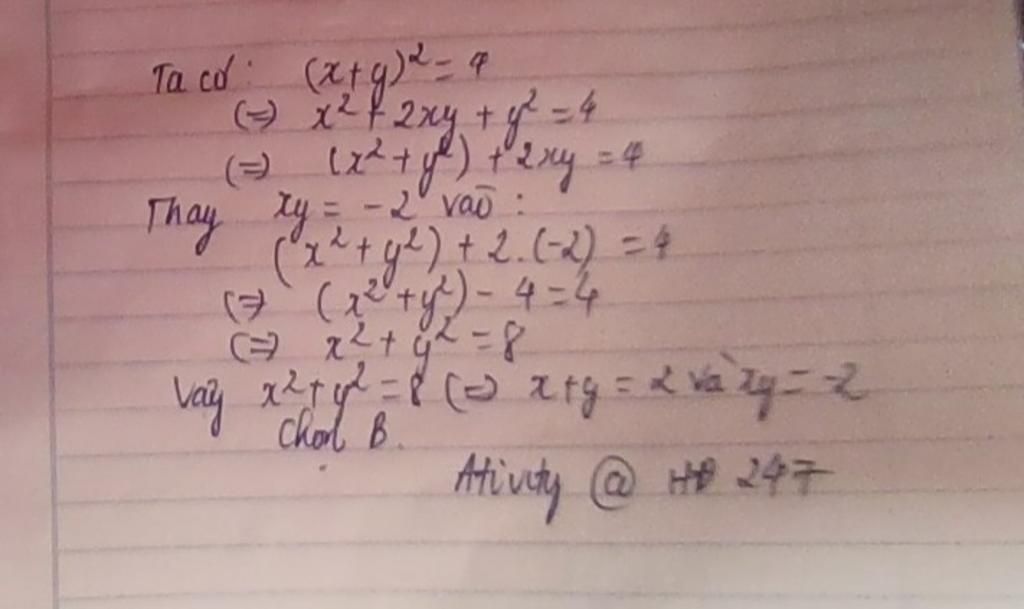 Ta có: (x+y)² = 4
(=) x² + 2xy + y² = 4
(=) (x² + y²) + 2xy = 4
Thay xy = -2 vào:
(x² + y²) + 2.(-2) = 4
(=) (x² + y²) - 4 = 4
(=) x² + y² = 8
Vậy x² + y² = 8 (=) x + y = 2 và xy = -2
Chọn B.
Ativity @ HĐ 247